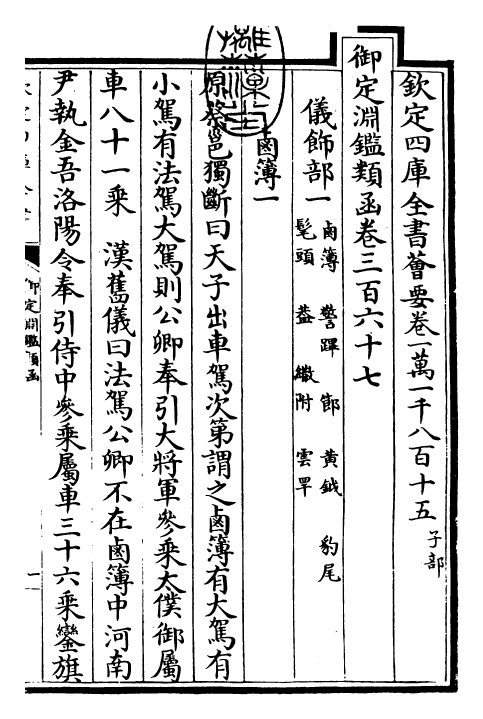 欽定四庫全書薈要卷一萬一千八百十五 子部
御定淵鑑類函卷三百六十七
儀飾部一 鹵簿 警蹕 節 黃鉞 豹尾
髦頭 蓋 繖附 雲䍐
鹵簿一
原蔡邕獨斷曰天子出車駕次第謂之鹵簿有大駕有
小駕有法駕大駕則公卿奉引大將軍參乘太僕御屬
車八十一乘 漢舊儀曰法駕公卿不在鹵簿中河南
尹執金吾洛陽令奉引侍中參乘屬車三十六乘鑾旗
御定淵鑑類函
一